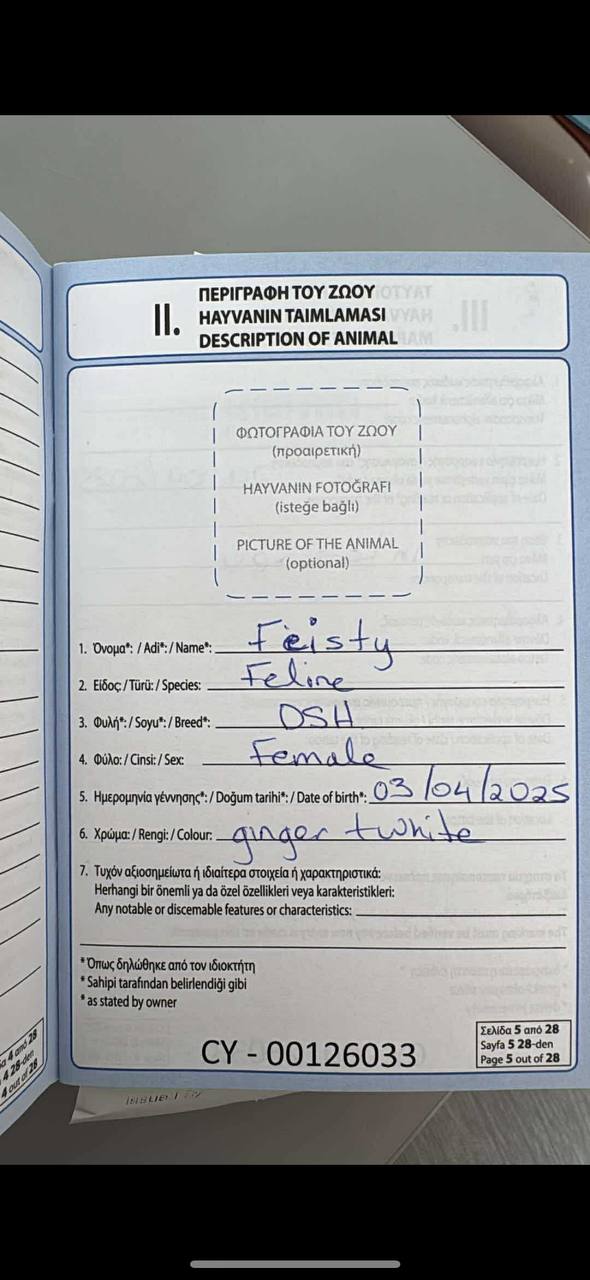 II.
ΠΕΡΙΓΡΑΦΗ ΤΟΥ ΖΩΟΥ
HAYVANIN TAIMLAMASI
DESCRIPTION OF ANIMAL
ΦΩΤΟΓΡΑΦΙΑ ΤΟΥ ΖΩΟΥ
(προαιρετική)
HAYVANIN FOTOĞRAFI
(isteğe bağlı)
PICTURE OF THE ANIMAL
(optional)
1. Όνομα*: / Adi*: / Name*: Feisty
2. Είδος: / Türü: / Species: Feline
3. Φυλή*: / Soyu*: / Breed*: DSH
4. Φύλο: / Cinsi: / Sex: Female
5. Ημερομηνία γέννησης*: / Doğum tarihi*: / Date of birth*: 03/04/2025
6. Χρώμα: / Rengi: / Colour: ginger + white
7. Τυχόν αξιοσημείωτα ή ιδιαίτερα στοιχεία ή χαρακτηριστικά:
Herhangi bir önemli ya da özel özellikleri veya karakteristikleri:
Any notable or discernable features or characteristics:
*Όπως δηλώθηκε από τον ιδιοκτήτη
*Sahipi tarafından belirlendiği gibi
* as stated by owner
CY - 00126033
Σελίδα 5 από 28
Sayfa 5 28-den
Page 5 out of 28
4 από 28
4 28-den
4 out of 28